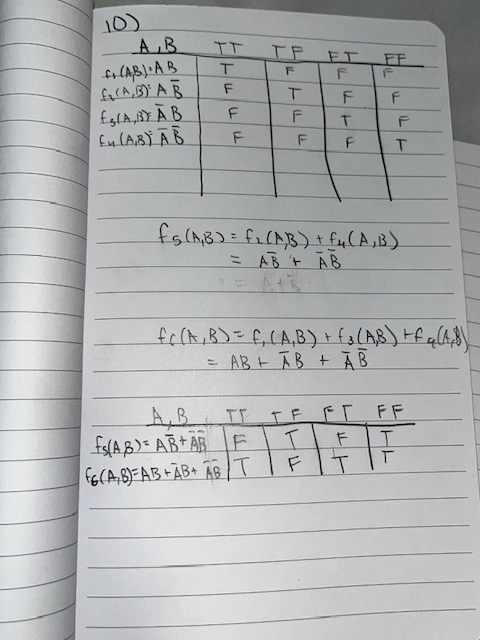 10)
A, B TT TF FT FF
f₁(A,B)=AB T F F F
f₂(A,B)=AB̅ F T F F
f₃(A,B)=A̅B F F T F
f₄(A,B)=A̅B̅ F F F T
f₅(A,B) = f₂(A,B) + f₄(A,B)
= AB̅ + A̅B̅
f₆(A,B) = f₁(A,B) + f₃(A,B) + f₄(A,B)
= AB + A̅B + A̅B̅
A, B TT TF FT FF
f₅(A,B) = AB̅ + A̅B̅ F T F T
f₆(A,B) = AB + A̅B + A̅B̅ T F T T